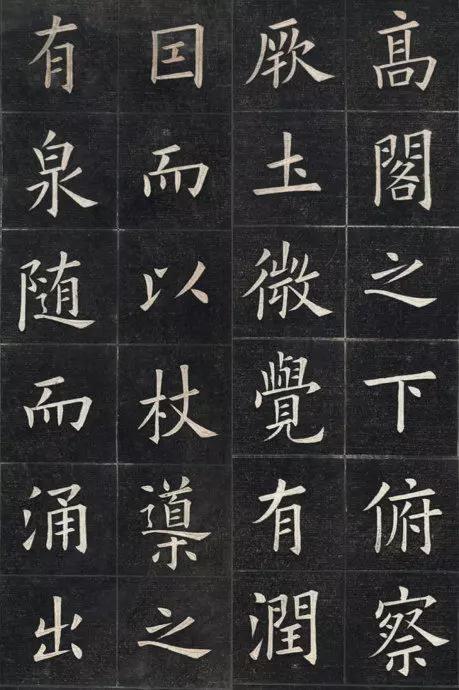 髙閣之下俯察
厥圡微覺有潤
囙而以杖導之
有泉随而涌出